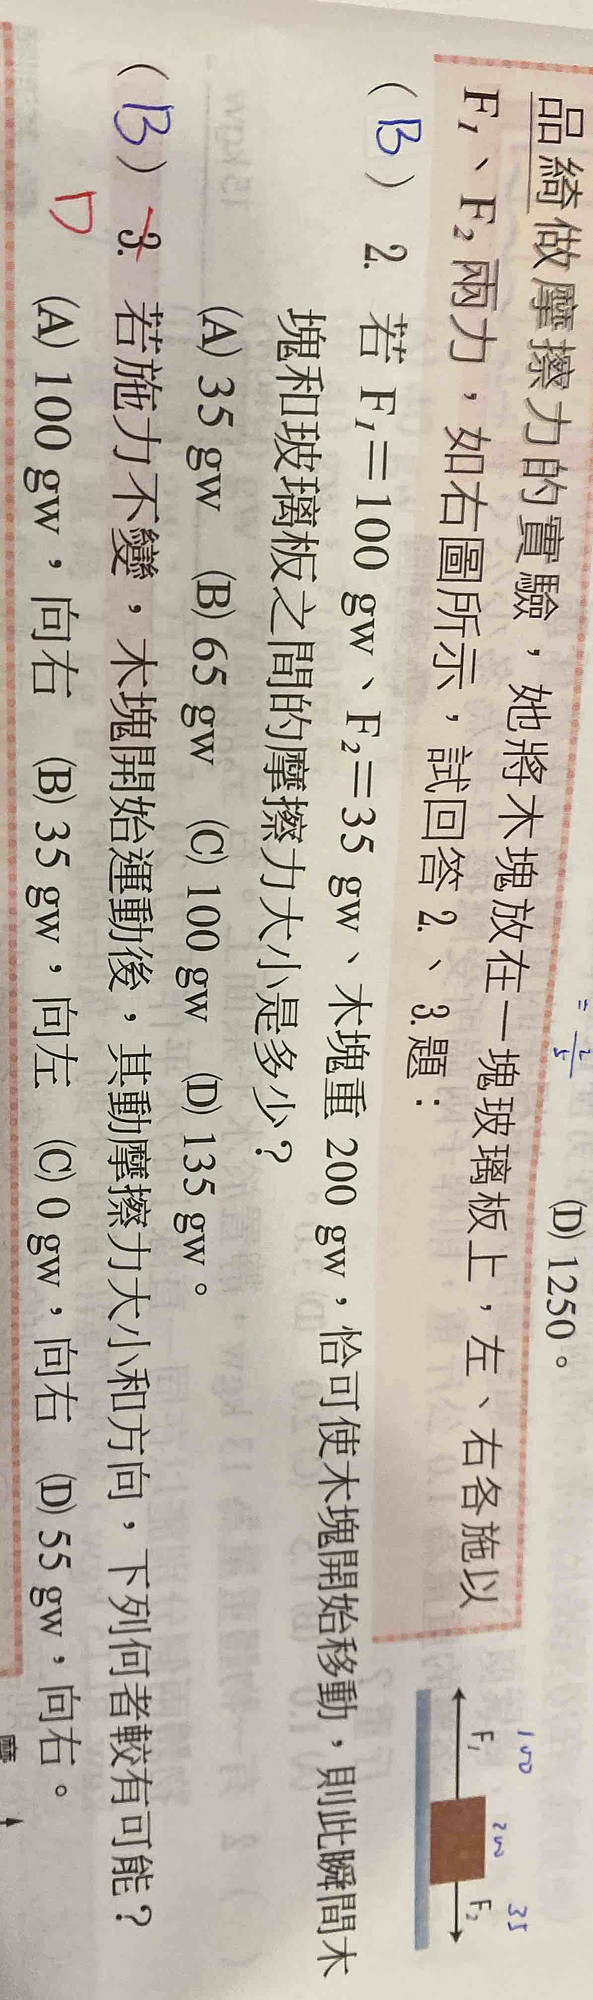 = 2/5
(D) 1250。
品綺做摩擦力的實驗，她將木塊放在一塊玻璃板上，左、右各施以
F₁、F₂兩力，如右圖所示，試回答 2.、3.題：
100 200 35
F₁ F₂
(B) 2. 若 F₁＝100 gw、F₂＝35 gw、木塊重 200 gw，恰可使木塊開始移動，則此瞬間木
塊和玻璃板之間的摩擦力大小是多少？
(A) 35 gw (B) 65 gw (C) 100 gw (D) 135 gw。
(B) 3. 若施力不變，木塊開始運動後，其動摩擦力大小和方向，下列何者較有可能？
D
(A) 100 gw，向右 (B) 35 gw，向左 (C) 0 gw，向右 (D) 55 gw，向右。